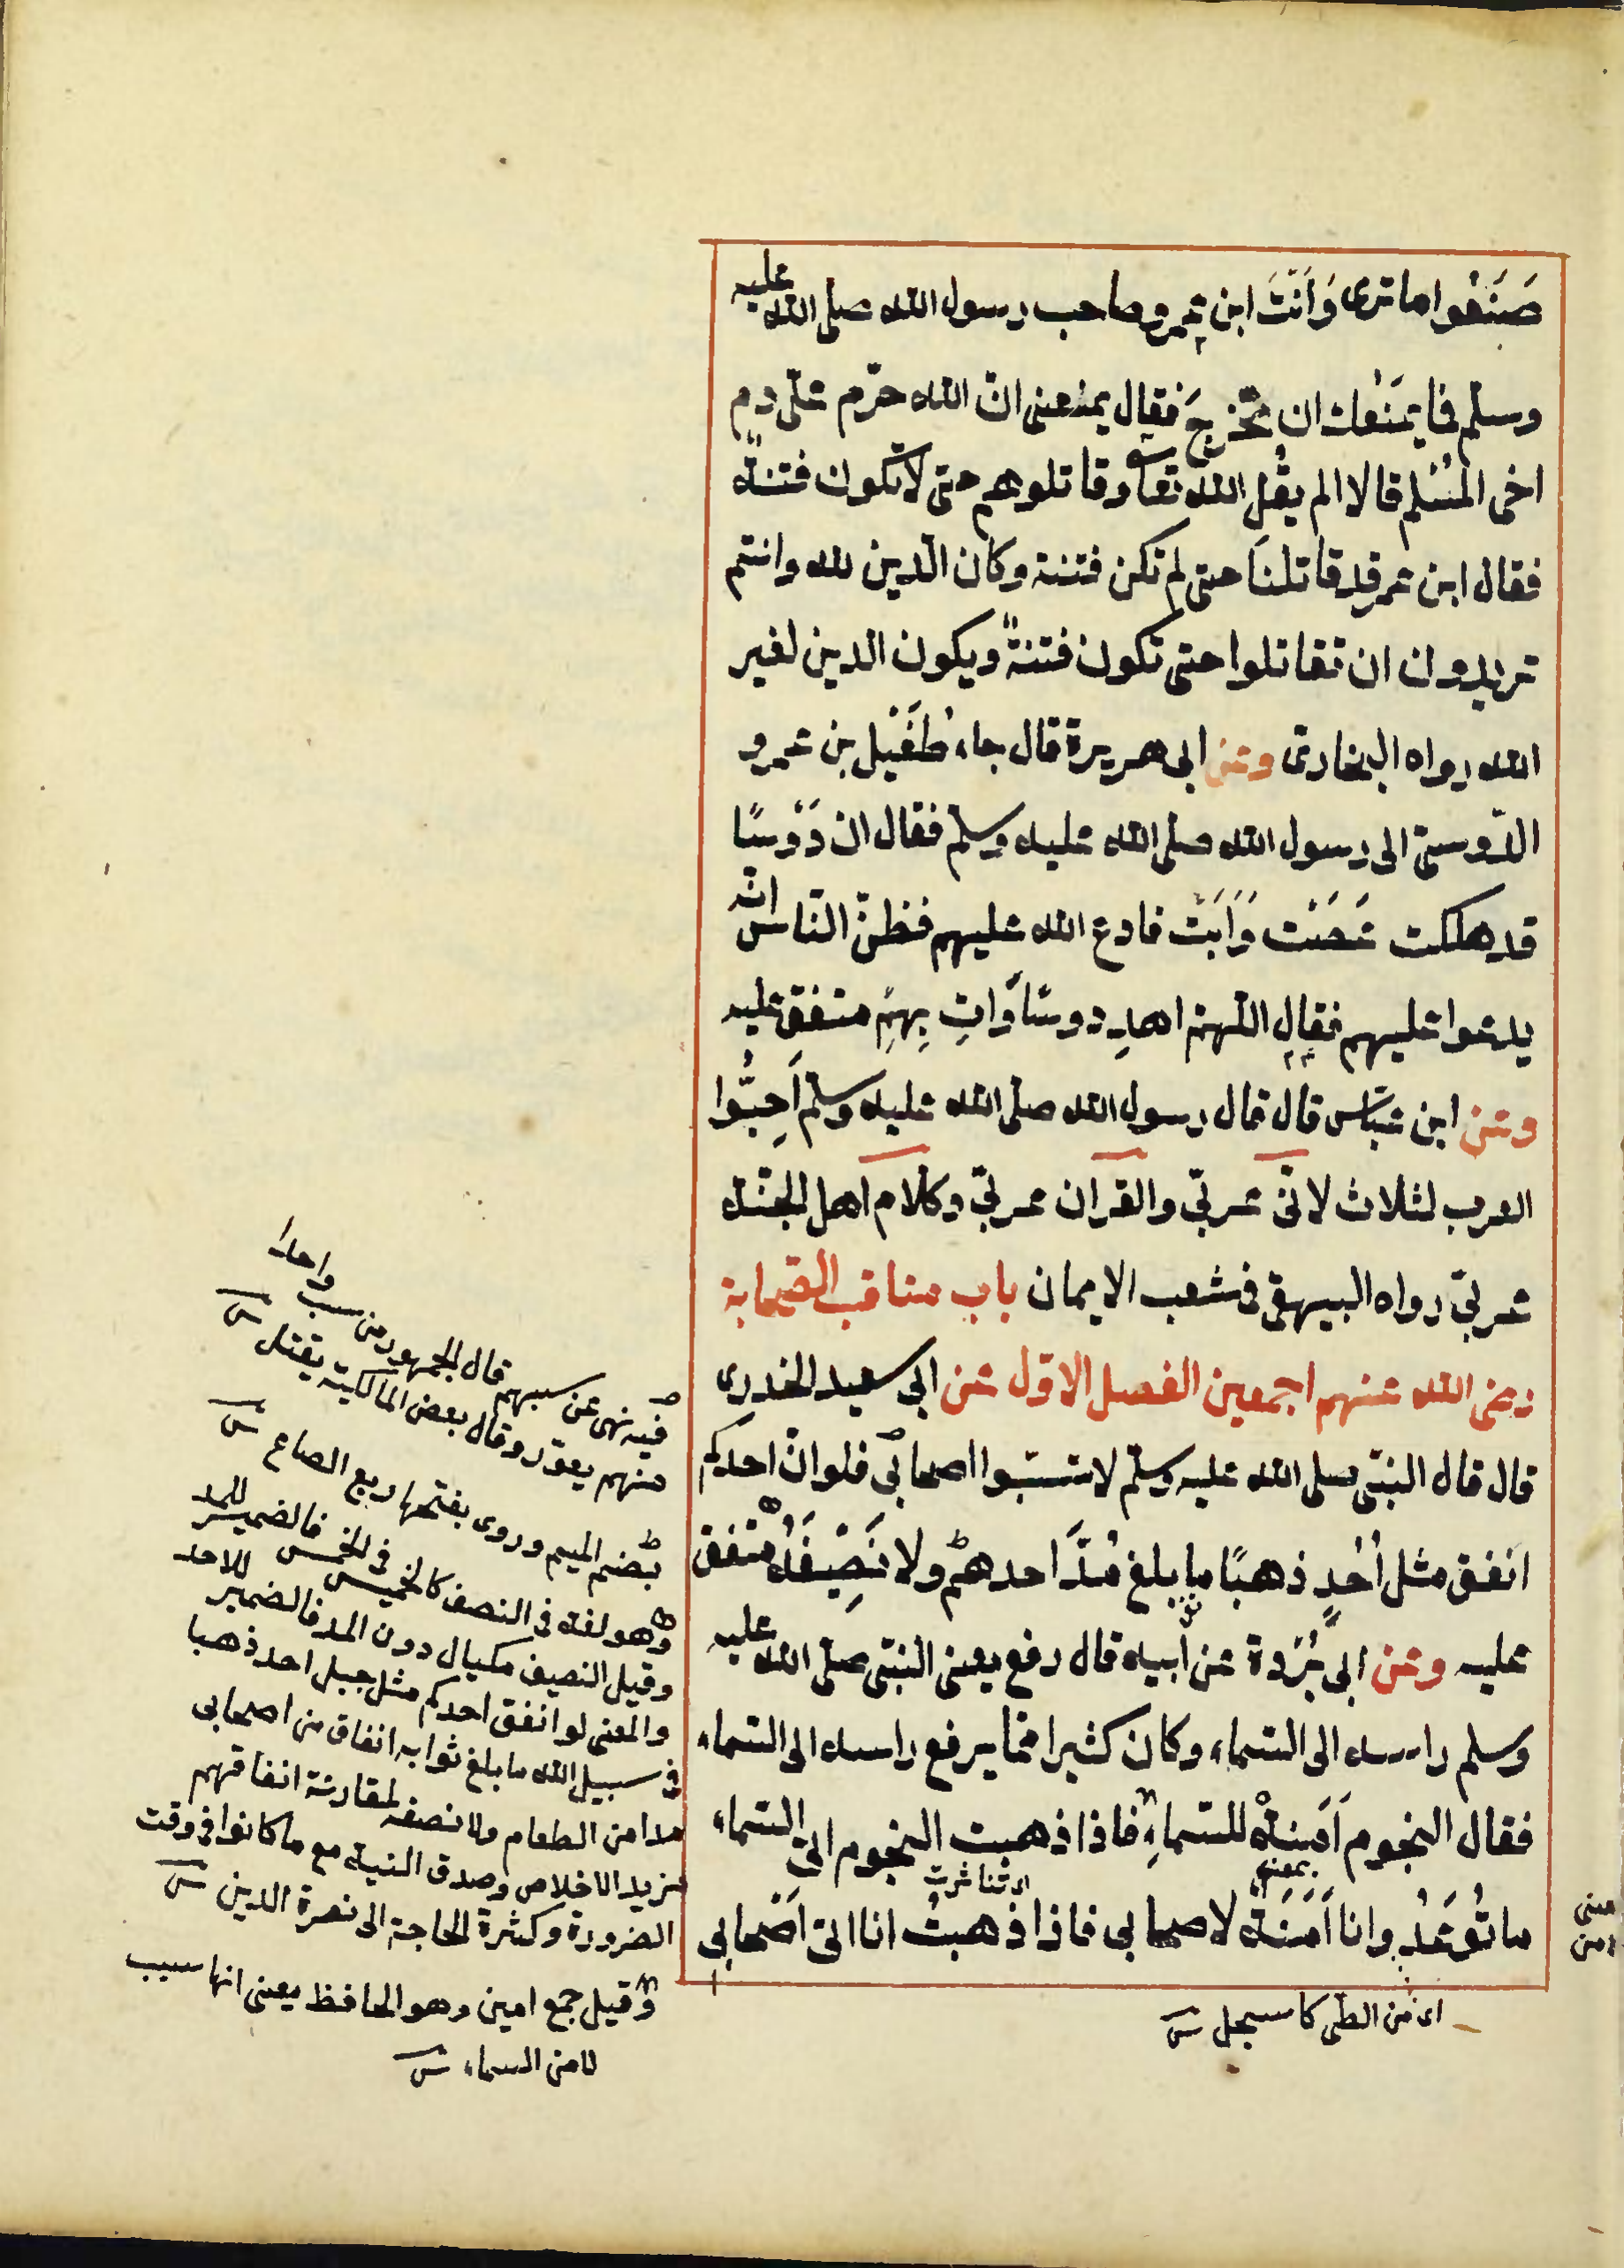 صَنَعُوا ما ترى وَاَنتَ ابن عمر وصاحب رسول الله صلى الله عليه
وسلم فما يَمنَعُك ان تخرجَ فقال يمنعنى انّ الله حرّم علىّ دم
اخى المسُلم قالا الم يقُلِ الله تعا وقاتلوهم حتى لا تكون فتنةٌ
فقال ابن عمر قد قاتلنَا حتى لم تكن فتنة وكان الدّين لله وانتم
تريدون ان تقاتلوا حتى تكون فتنةٌ ويكون الدين لغير
الله رواه البخارى وعن ابى هريرة قال جاء طُفَيْل بن عمرو
الدّوسىّ الى رسول الله صلى الله عليه وسلم فقال ان دَوْسًا
قد هلكت عَصَتْ وَاَبَتْ فادع الله عليهم فظنّ النّاس انّه
يدعوا عليهم فقال اللّهمّ اهدِ دوسًا وَاتِ بِهِمْ متفق عليه
وعن ابن عبّاس قال قال رسول الله صلى الله عليه وسلم اَحِبُّوا
العرب لثلاث لانّى عربىّ والقران عربىّ وكلام اهل الجنّة
عربىّ رواه البيهقى فى شعب الايمان باب مناقب الصّحابة
رضى الله عنهم اجمعين الفصل الاوّل عن ابى سعيد الخدرى
قال قال النبّى صلى الله عليه وسلّم لا تسبّوا اصحابى فلو انّ احدكم
انفق مثل اُحُدٍ ذهبًا ما بلغ مُدَّ احدهم ولا نَصِيْفَهُ متفق
عليه وعن ابى بُرْدة عن ابيه قال رفع يعنى النبّى صلى الله عليه
وسلم راسه الى السّماء وكان كثيرا ممّا يرفع راسه الى السّماء
فقال النجوم اَمَنةٌ للسّماءِ فاذا ذهبت النجوم اتى السّماء
بمعنى
ما تُوعَدُ وانا اَمَنَةٌ لاصحابى فاذا ذهبتُ انا اتى اَصْحابى
اى من الطى كالسجل ش
فيه نهى عن سبهم قال الجمهور من سب واحدا
منهم يعزر وقال بعض المالكية يقتل ش
بضم الميم وروى بفتحها ربع الصاع ش
وهو لغة فى النصف كالخميس فى الخمس فالضمير للمد
وقيل النصيف مكيال دون المد فالضمير للاحد
والمعنى لو انفق احدكم مثل جبل احد ذهبا
فى سبيل الله ما بلغ ثوابه انفاق من اصحابى
مدا من الطعام ولا نصفه لمقارنة انفاقهم
مزيد الاخلاص وصدق النية مع ما كانوا فى وقت
الضرورة وكثرة الحاجة الى نصرة الدين ش
وقيل جمع امين وهو الحافظ يعنى انها سبب
لامن السماء ش